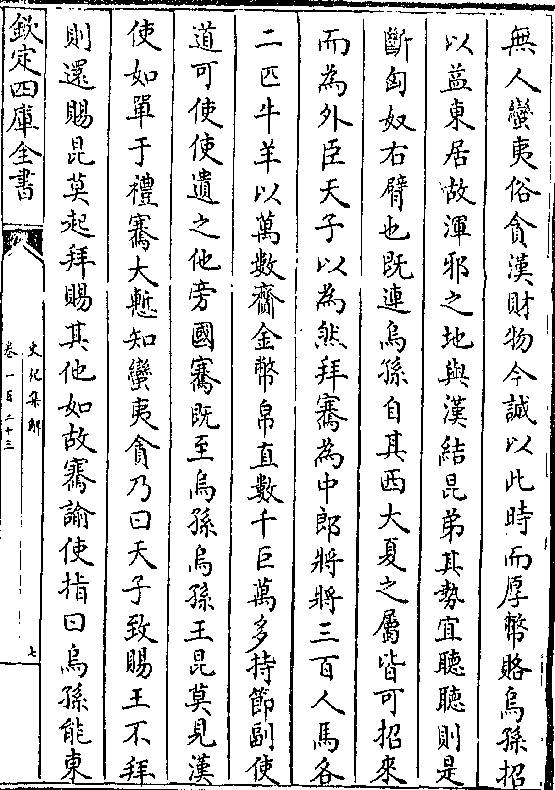 無人蠻夷俗貪漢財物今誠以此時而厚幣賂烏孫招
以益東居故渾邪之地與漢結昆弟其勢宜聽聽則是
斷匈奴右臂也既連烏孫自其西大夏之屬皆可招來
而為外臣天子以為然拜騫為中郎將將三百人馬各
二匹牛羊以萬數齎金幣帛直數千巨萬多持節副使
道可使使遺之他旁國騫既至烏孫烏孫王昆莫見漢
使如單于禮騫大慙知蠻夷貪乃曰天子致賜王不拜
則還賜昆莫起拜賜其他如故騫諭使指曰烏孫能東
欽定四庫全書
史記集解
卷一百二十三
七